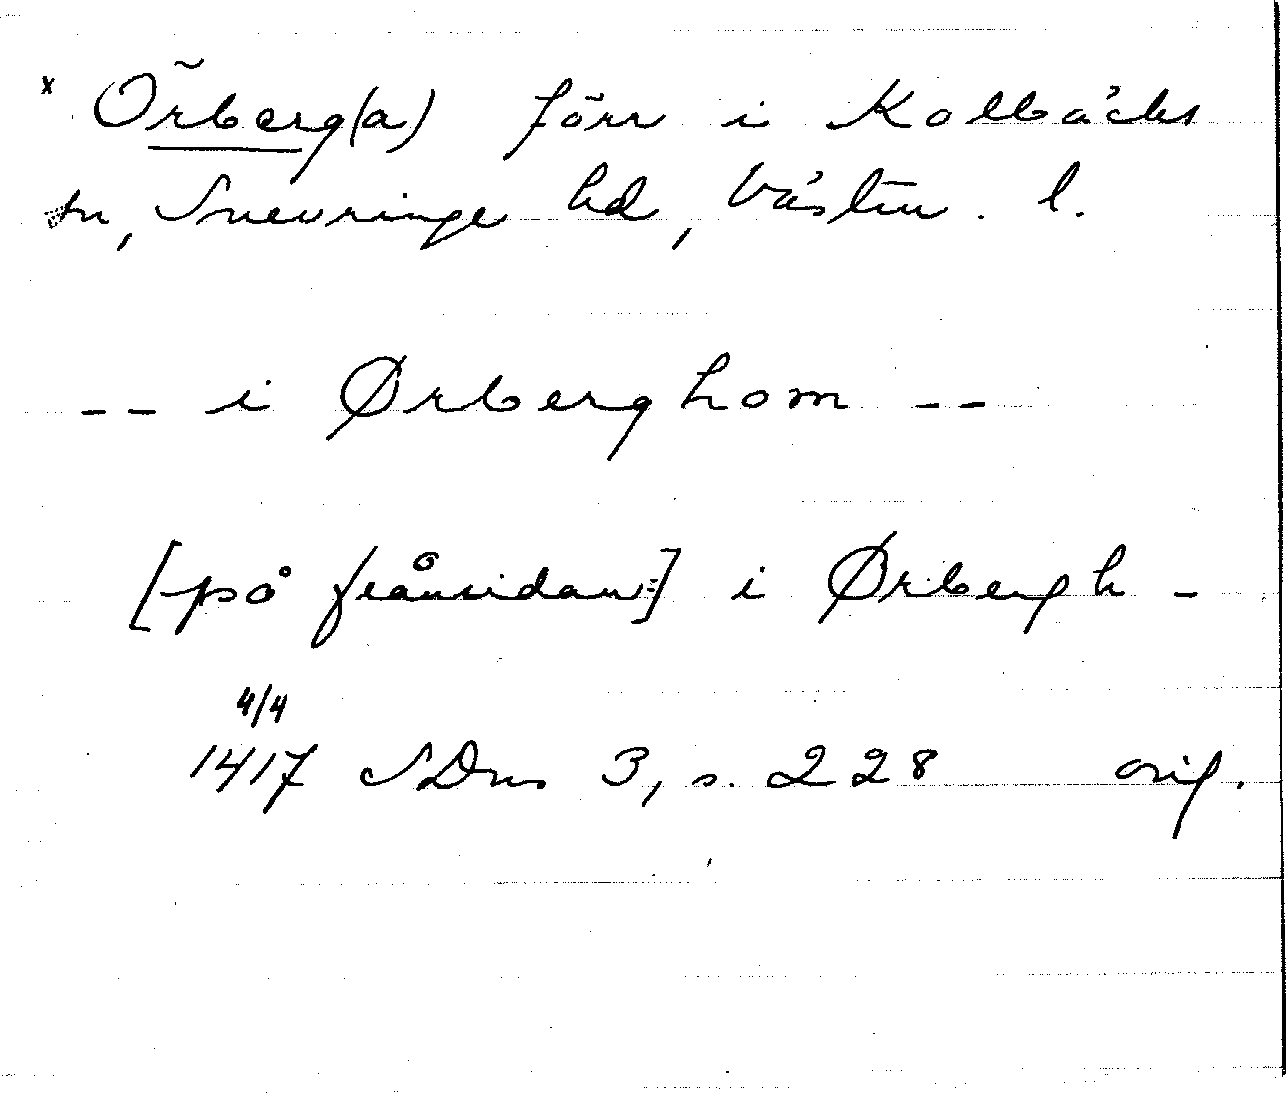 x Örberg(a) förr i Kolbäcks
sn, Snevringe hd, Västm. l.
-- i Ørberghom --
[på frånsidan:] i Ørbergh -
4/4
1417 SDns 3, s. 228 orig.